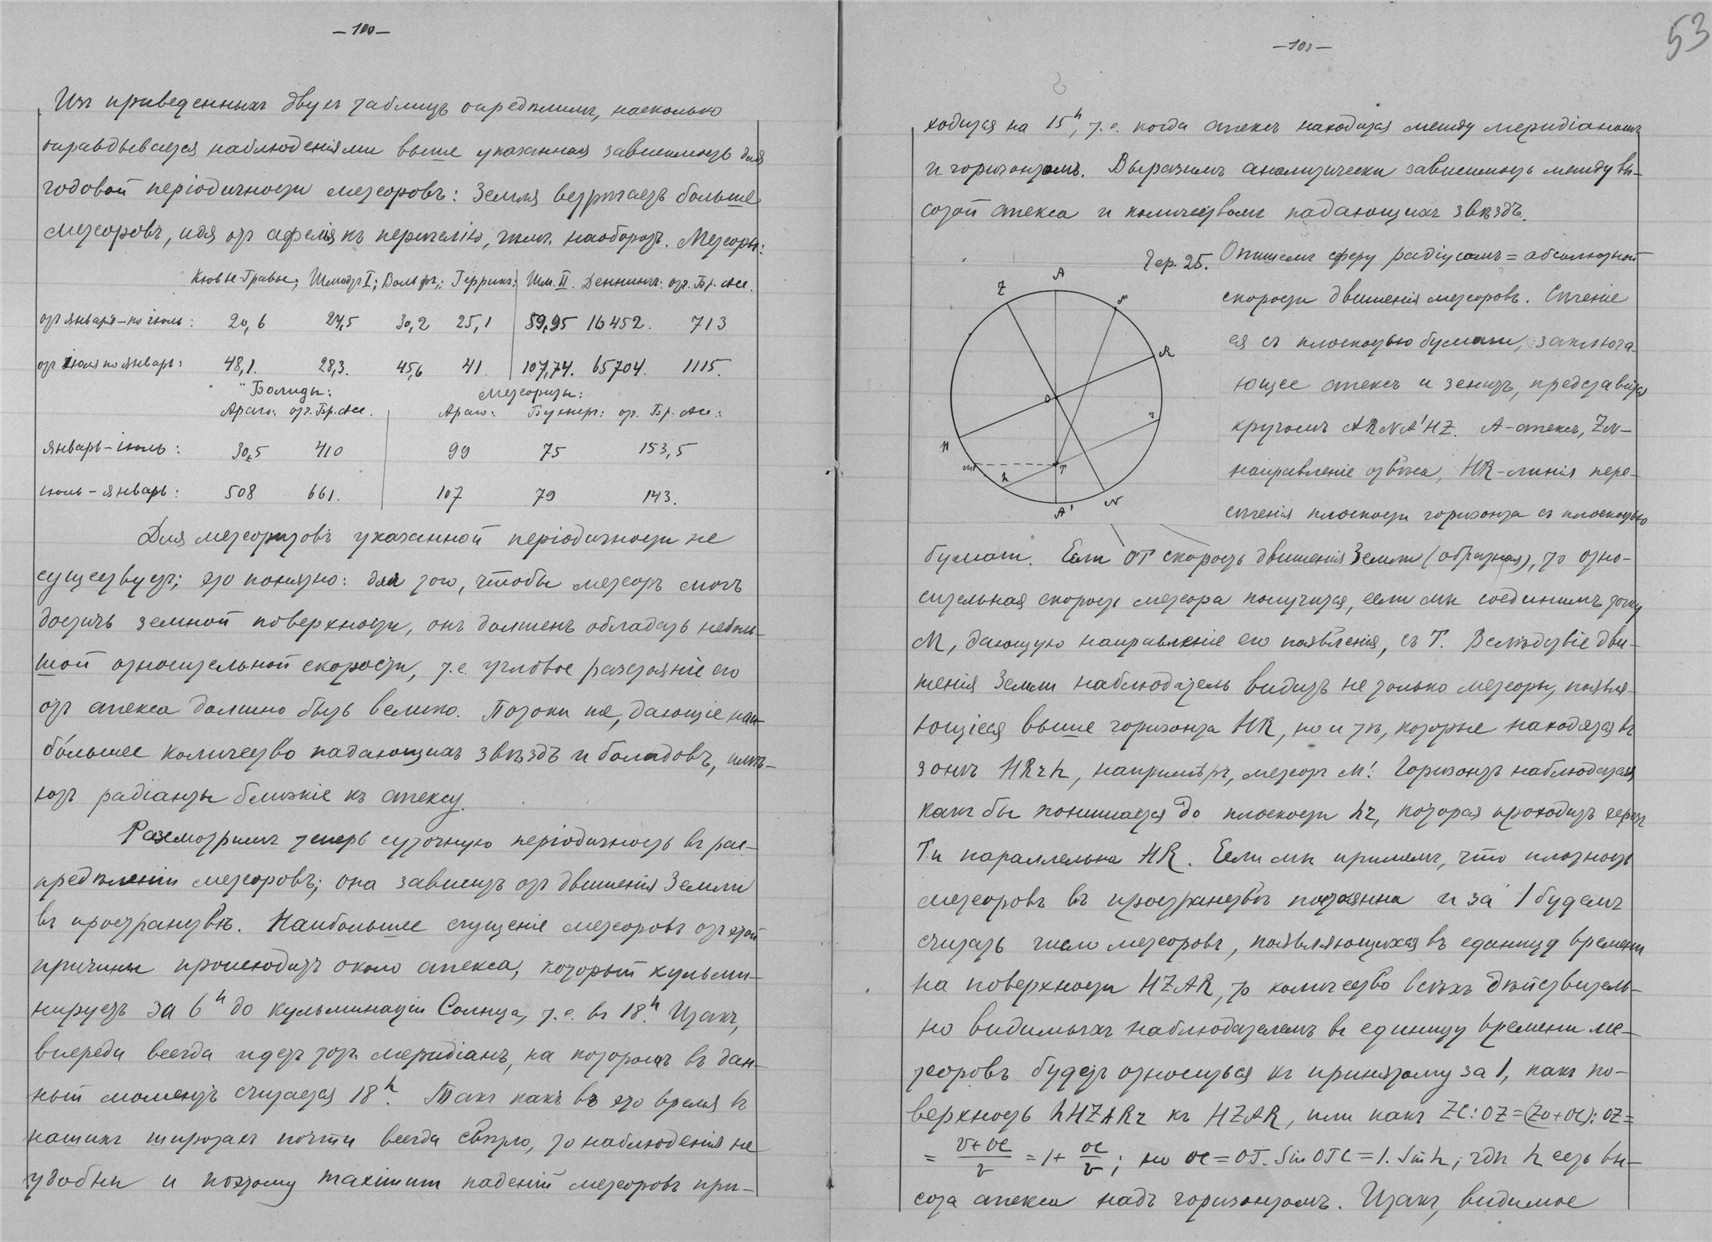 — 100 —
Изъ приведенныхъ двухъ таблицъ опредѣлимъ, насколько
оправдывается наблюденіями выше указанная зависимость для
годовой періодичности метеоровъ: Земля встрѣчаетъ больше
метеоровъ, идя отъ афелія къ перигелію, чѣмъ наоборотъ. Метеоры:
Кювье-Гравье; Шмидтъ I; Вольфъ; Геррикъ; Шм. II. Деннингъ: от. Бр. Асс.
отъ января–по іюль: 20,6 24,5 30,2 25,1 59,95 16452. 713
отъ іюля по январь: 48,1. 28,3. 45,6 41. 107,74. 65704. 1115.
Болиды: Метеориты:
Араго: от. Бр. Асс. Араго: Бухнеръ: от. Бр. Асс.:
январь–іюль: 30,5 410 99 75 153,5
іюль–январь: 508 661. 107 79 143.
Для метеоритовъ указанной періодичности не
существуетъ; это понятно: для того, чтобы метеоръ смогъ
достичь земной поверхности, онъ долженъ обладать неболь-
шой относительной скорости, т.е. угловое разстояніе его
отъ апекса должно быть велико. Потоки же, дающіе наи-
большее количество падающихъ звѣздъ и болидовъ, имѣ-
ютъ радіанты близкіе къ апексу.
Разсмотримъ теперь суточную періодичность въ рас-
предѣленіи метеоровъ; она зависитъ отъ движенія Земли
въ пространствѣ. Наибольшее сгущеніе метеоровъ отъ этой
причины происходитъ около апекса, который кульми-
нируетъ за 6h до кульминаціи Солнца, т.е. въ 18h. Итакъ,
впереди всегда идетъ тотъ меридіанъ, на которомъ въ дан-
ный моментъ считается 18h. Такъ какъ въ это время въ
нашихъ широтахъ почти всегда свѣтло, то наблюденія не
удобны и поэтому maximum паденій метеоровъ при-
— 101 —
53
ходится на 15h, т.е. когда апексъ находится между меридіаномъ
и горизонтомъ. Выразимъ аналитически зависимость между вы-
сотой апекса и количествомъ падающихъ звѣздъ.
Чер. 25. Опишемъ сферу радіусомъ = абсолютной
скорости движенія метеоровъ. Сѣченіе
ея съ плоскостью бумаги, заключа-
ющее апексъ и зенитъ, представится
кругомъ ARNA'HZ. A–апексъ, ZN–
направленіе отвѣса, HR–линія пере-
сѣченія плоскости горизонта съ плоскостью
A
Z
R
O
H
m
T
h
r
A'
N
бумаги. Если OT скорость движенія Земли (обратная), то отно-
сительная скорость метеора получится, если мы соединимъ точку
M, дающую направленіе его появленія, съ T. Вслѣдствіе дви-
женія Земли наблюдатель видитъ не только метеоры, появля-
ющіеся выше горизонта HR, но и тѣ, которые находятся въ
зонѣ HRrh, напримѣръ, метеоръ M'. Горизонтъ наблюдателя
какъ бы понижается до плоскости hr, которая проходитъ черезъ
T и параллельна HR. Если мы примемъ, что плотность
метеоровъ въ пространствѣ постоянна и за 1 будемъ
считать число метеоровъ, появляющихся въ единицу времени
на поверхности HZAR, то количество всѣхъ дѣйствитель-
но видимыхъ наблюдателемъ въ единицу времени ме-
теоровъ будетъ относиться къ принятому за 1, какъ по-
верхность hHZARr къ HZAR, или какъ ZC:OZ=(ZO+OC):OZ=
= v+OC / v = 1+ OC / v; но OC=OT. Sin OTC=1. Sin h, гдѣ h есть вы-
сота апекса надъ горизонтомъ. Итакъ, видимое